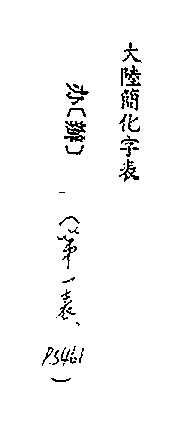 大陸簡化字表
办〔辦〕
（第一表、P3461）